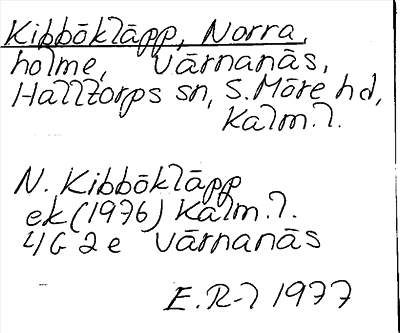 Kibböklāpp, Norra,
holme, Vārnanās,
Halltorps sn, S. Mōre hd,
Kalm. l.
N. Kibbōklāpp
ek (1976) Kalm. l.
4G 2e Vārnanās
E. R-l 1977